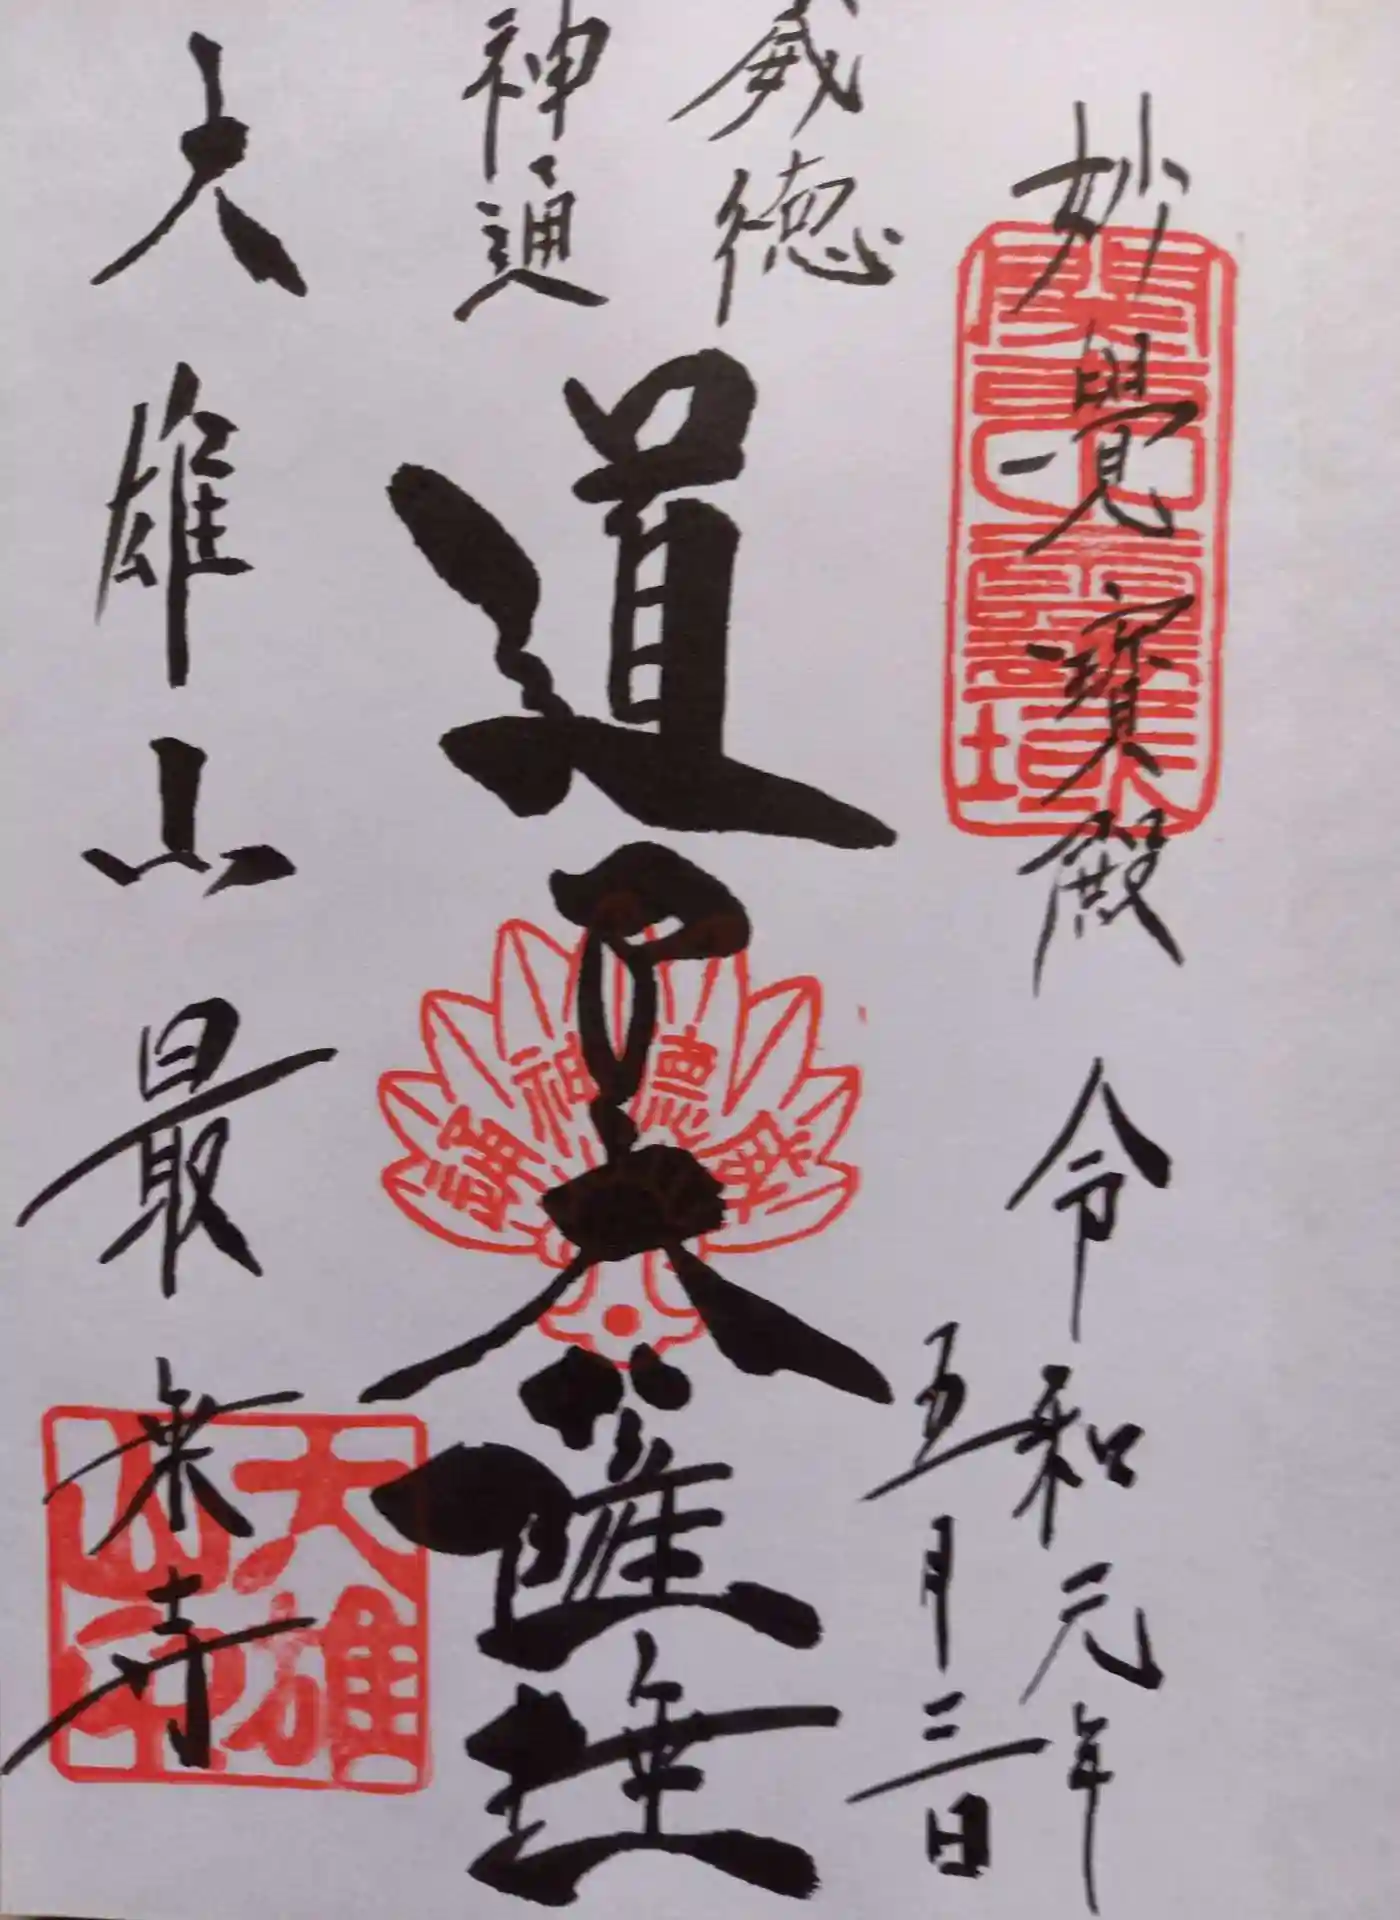 妙覺寶殿
令和元年
五月三日
威徳
神通
道了大薩埵
大雄山最乗寺
關東靈場
威德神通
大雄山印